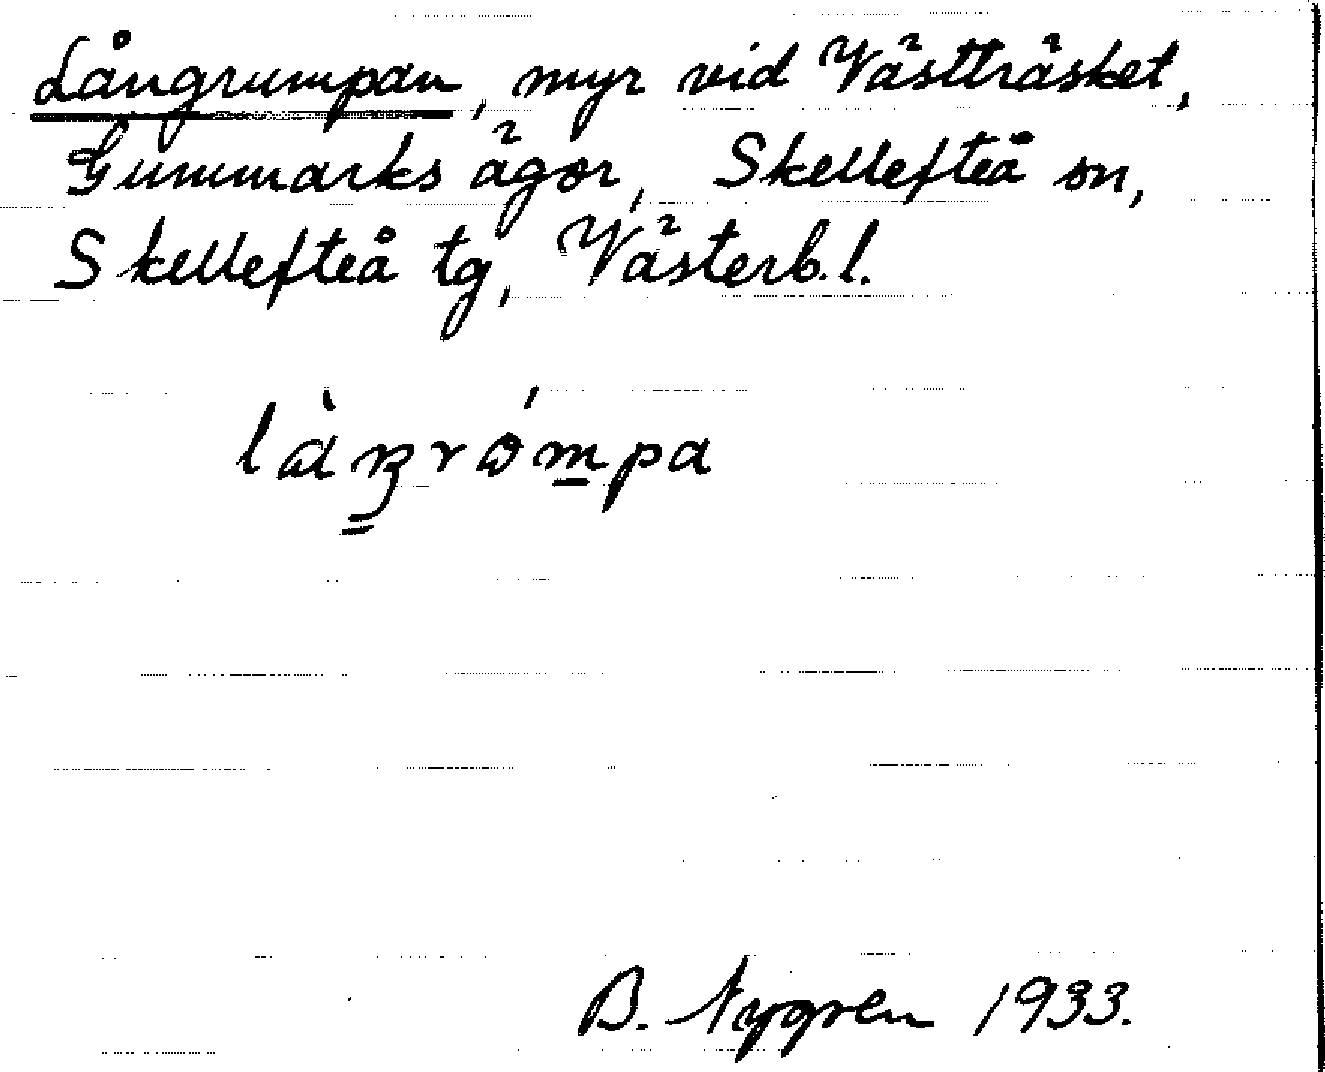 Långrumpan, myr vid Västträsket,
Gummarks ägor, Skellefteå sn,
Skellefteå tg, Västerb. l.
B. Nygren 1933.